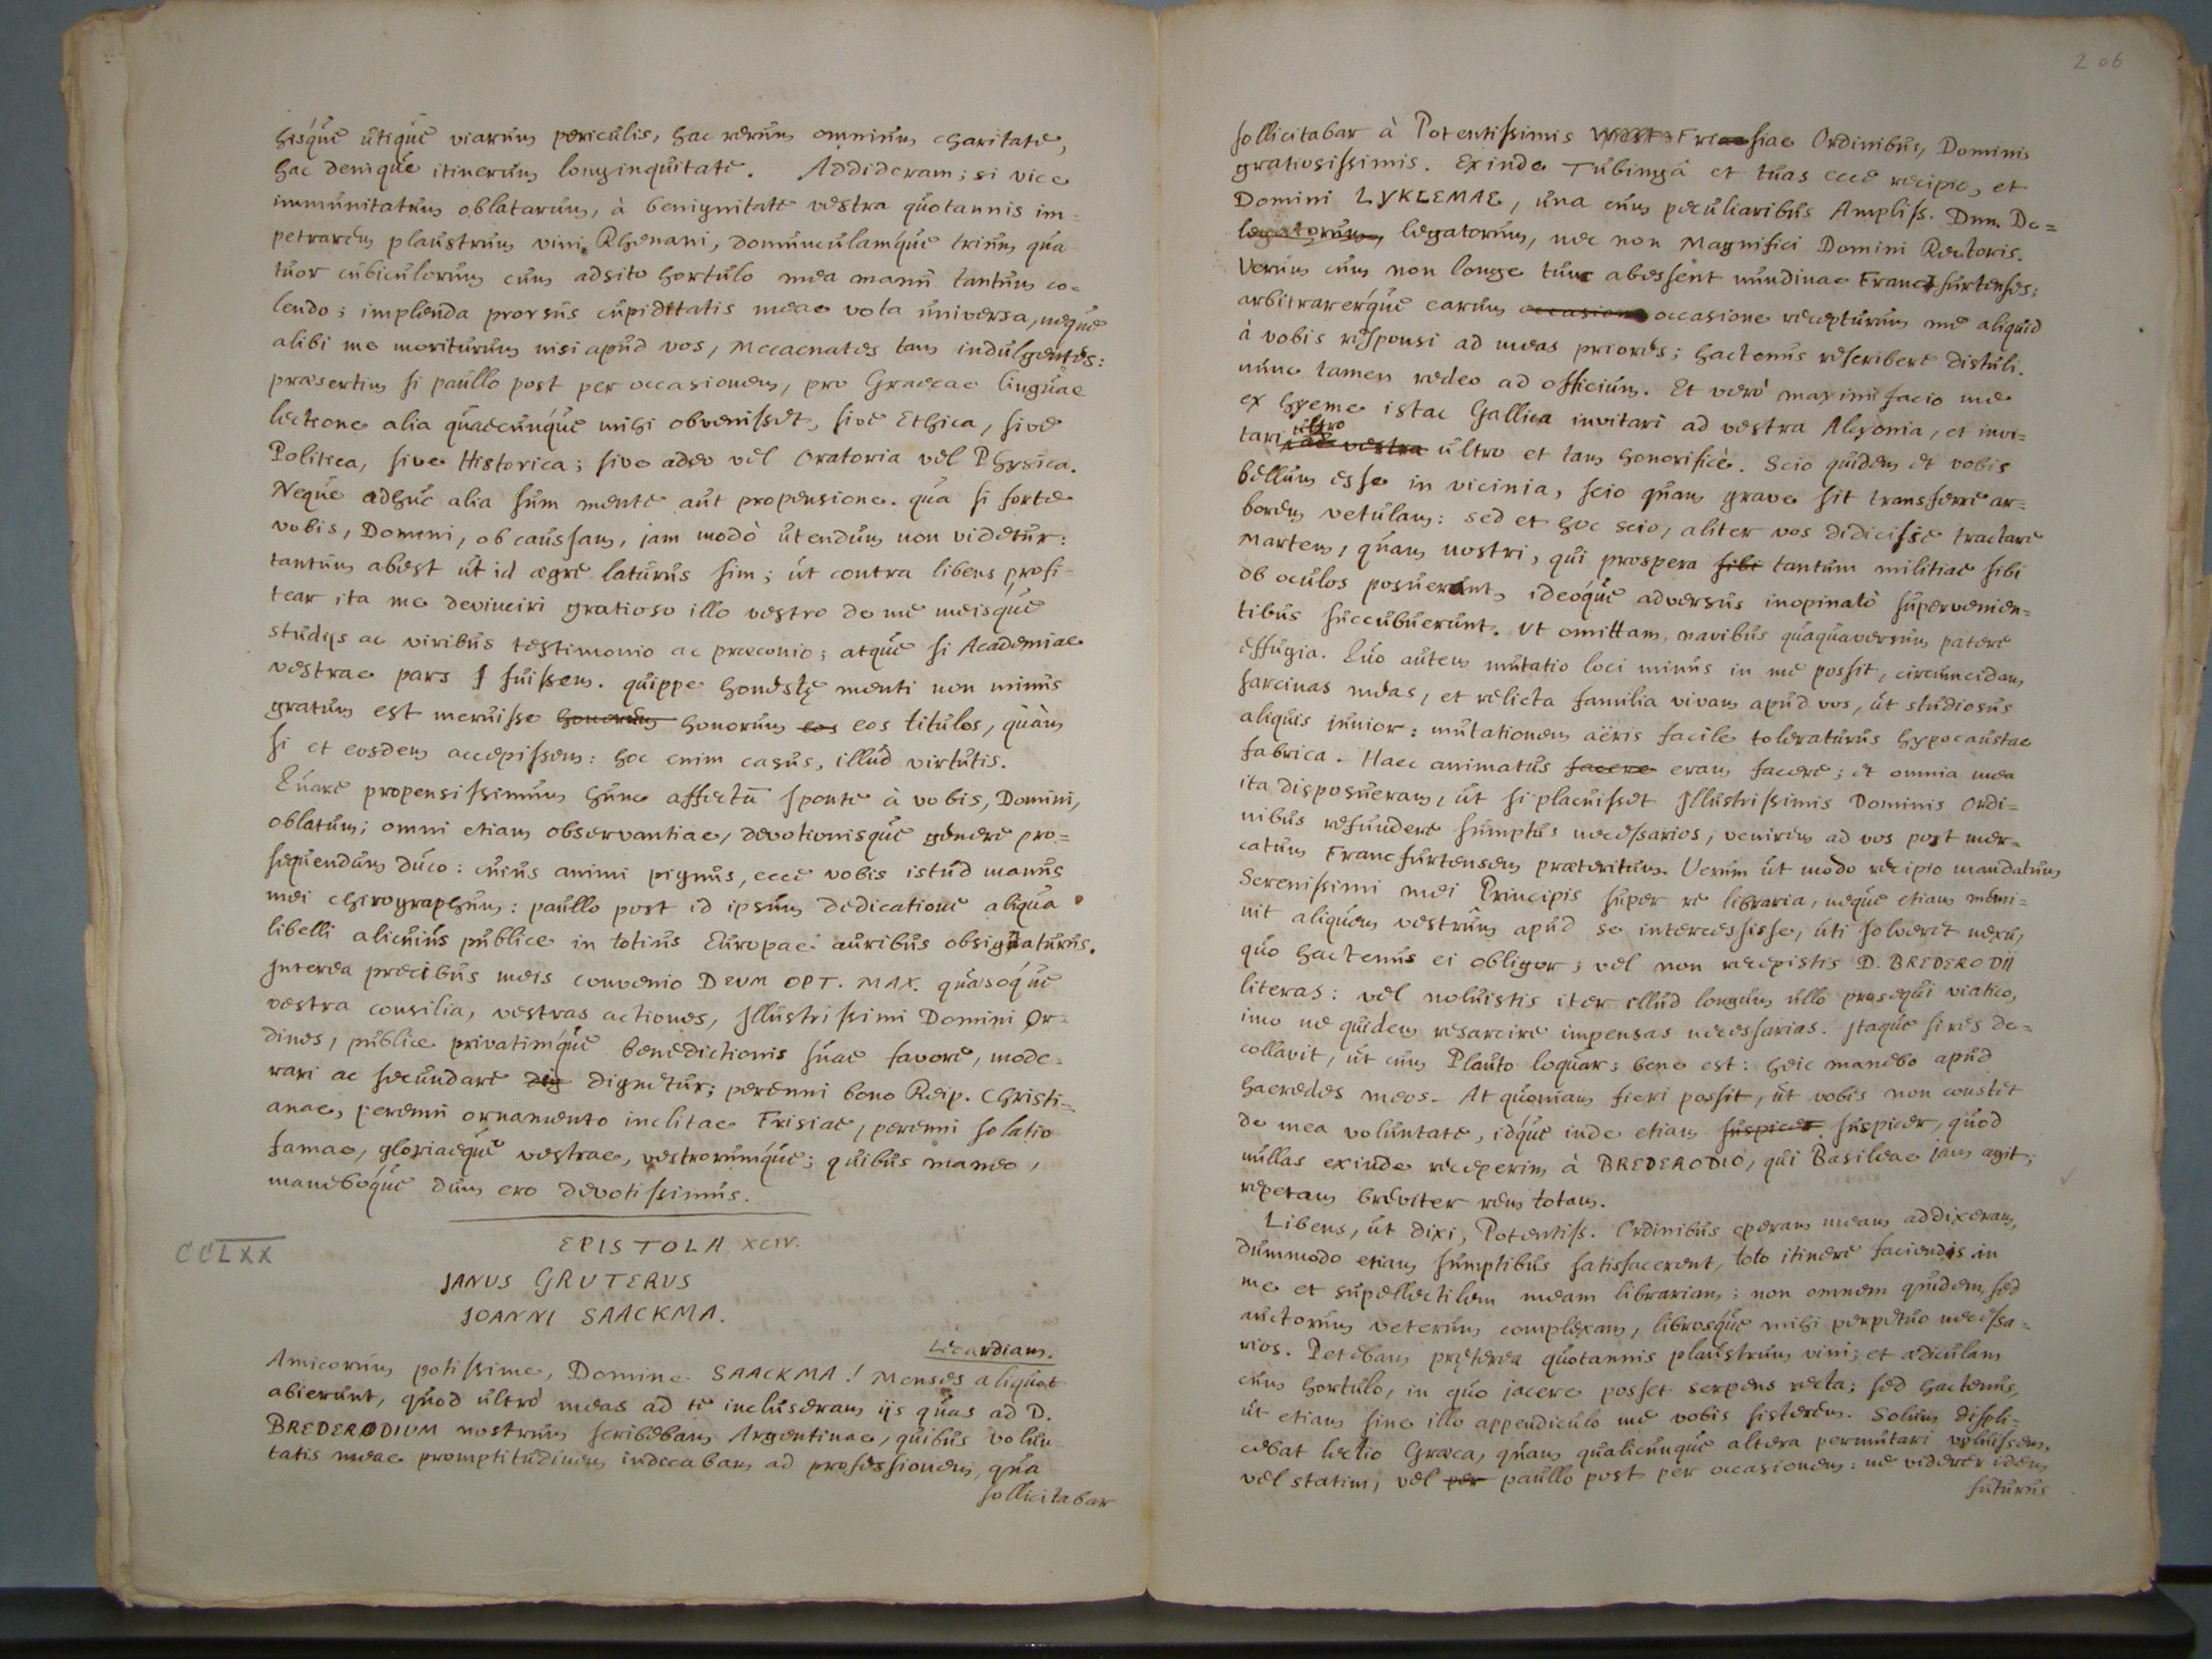 hisque utique viarum periculis, hac rerum omnium charitate,
hac denique itinerum longinquitate. Addideram; si vice
immunitatum oblatarum, à benignitate vestra quotannis im=
petrarem plaustrum vini Rhenani, domunculamque trium qua
tuor cubiculorum cum adsito hortulo mea manu tantum co=
lendo; implenda prorsus cupiditatis meae vota universa, neque
alibi me moriturum nisi apud vos, Mecaenates tam indulgentes:
praesertim si paullo post per occasionem, pro Graecae linguae
lectione alia quaecunque mihi obvenisset, sive Ethica, sive
Politica, sive Historica; sive adeo vel Oratoria vel Physica.
Neque adhuc alia sum mente aut propensione. qua si forte
vobis, Domini, ob caussam, jam modò utendum non videtur:
tantum abest ut id aegre laturus sim; út contra libens profi-
tear ita me devinciri gratioso illo vestro de me meisque
studijs ac viribus testimonio ac praeconio; atque si Academiae
vestrae pars fuissem. quippe honestę menti non minus
gratum est meruisse honorum honorum eos eos titulos, quàm
si et eosdem accepissem: hoc enim casus, illud virtutis.
Quare propensissimum hunc affectū sponte à vobis, Domini,
oblatum; omni etiam observantiae, devotionisque genere pro=
sequendum duco: cuius animi pignus, ecce vobis istud manus
mei chirographum: paullo post id ipsum dedicatione aliqua
libelli alicuius publice in totius Europae auribus obsignaturus.
Interea precibus meis convenio DEUM OPT. MAX. quasoque
vestra consilia, vestras actiones, Illustrissimi Domini Or-
dines, publice privatimque benedictionis suae favore, mode-
rari ac secundare dig dignetur; perenni bono Reip. Christi=
anae, perenni ornamento inclitae Frisiae, perenni solatio
famae, gloriaeque vestrae, vestrorumque; quibus maneo,
maneboque dum ero devotissimus.
CCLXX
EPISTOLA XCIV.
JANUS GRUTERUS
JOANNI SAACKMA.
Leeardiam.
Amicorum potissime, Domine SAACKMA! Menses aliquot
abierunt, quod ultrò meas ad te incluseram ijs quas ad D.
BREDERODIUM nostrum scribebam Argentinae, quibus volun
tatis meae promptitudinem indicabam ad professionem, qua
sollicitabar
206
sollicitabar à Potentissimis Frisiae Ordinibus, Dominis
gratiosissimis. Exinde Tubingâ et tuas ecce recipio, et
Domini LYKLEMAE, una cum peculiaribus Ampliss. Dnn. De=
legatorum, legatorum, nec non Magnifici Domini Rectoris.
Verum cum non longe tunc abessent nundinae Francfurtenses;
arbitrarerque earum occasione occasione recepturum me aliquid
à vobis responsi ad meas priores; hactenus rescribere distuli.
nunc tamen redeo ad officium. Et verò maximi facio me
ex hyeme istac Gallica invitari ad vestra Alcyonia, et invi=
ultro
tari ad vestra ultro et tam honorificè. Scio quidem et vobis
bellum esse in vicinia, scio quam grave sit transferre ar=
borem vetulam: sed et hoc scio, aliter vos didicisse tractare
Martem, quam nostri, qui prospera sibi tantum militiae sibi
ob oculos posuerunt, ideoque adversus inopinatò supervenien=
tibus succubuerunt. Ut omittam, navibus quaquaversum patere
effugia. Quo autem mutatio loci minus in me possit, circumcidam
sarcinas meas, et relicta familia vivam apud vos, ut studiosus
aliquis junior: mutationem aëris facile toleraturus hypocaustae
fabrica. Haec animatus facere eram facere; et omnia mea
ita disposueram, ut si placuisset Illustrissimis Dominis Ordi=
nibus refundere sumptus necessarios, venirem ad vos post mer=
catum Francfurtensem praeteritum. Verum ut modo recipio mandatum
Serenissimi mei Principis super re libraria, neque etiam memi=
nit aliquem vestrûm apud se intercessisse, uti solveret nexu,
quo hactenus ei obligor; vel non recepistis D. BREDERODII
literas: vel noluistis iter illud longum ullo prosequi viatico,
imo ne quidem resarcire impensas necessarias. Itaque si res de=
collavit, ut cum Plauto loquar; bene est: heic manebo apud
haeredes meos. At quoniam fieri possit, ut vobis non constet
de mea voluntate, idque inde etiam suspicer suspicer, quod
nullas exinde receperim à BREDERODIO, qui Basileae jam agit;
repetam breviter rem totam.
Libens, ut dixi, Potentiss. Ordinibus operam meam addixeram,
dummodo etiam sumptibus satisfacerent, toto itinere faciendis in
me et supellectilem meam librariam; non omnem quidem, sed
auctorum veterum complexam, librosque mihi perpetuo necessa=
rios. Petebam pręterea quotannis plaustrum vini; et aediculam
cum hortulo, in quo jacere posset serpens recta; sed hactenus,
ut etiam sine illo appendiculo me vobis sisterem. Solum displi=
cebat lectio Graeca, quam qualicunque altera permutari voluissem,
vel statim, vel per paullo post per occasionem: ne viderer idem
futurus